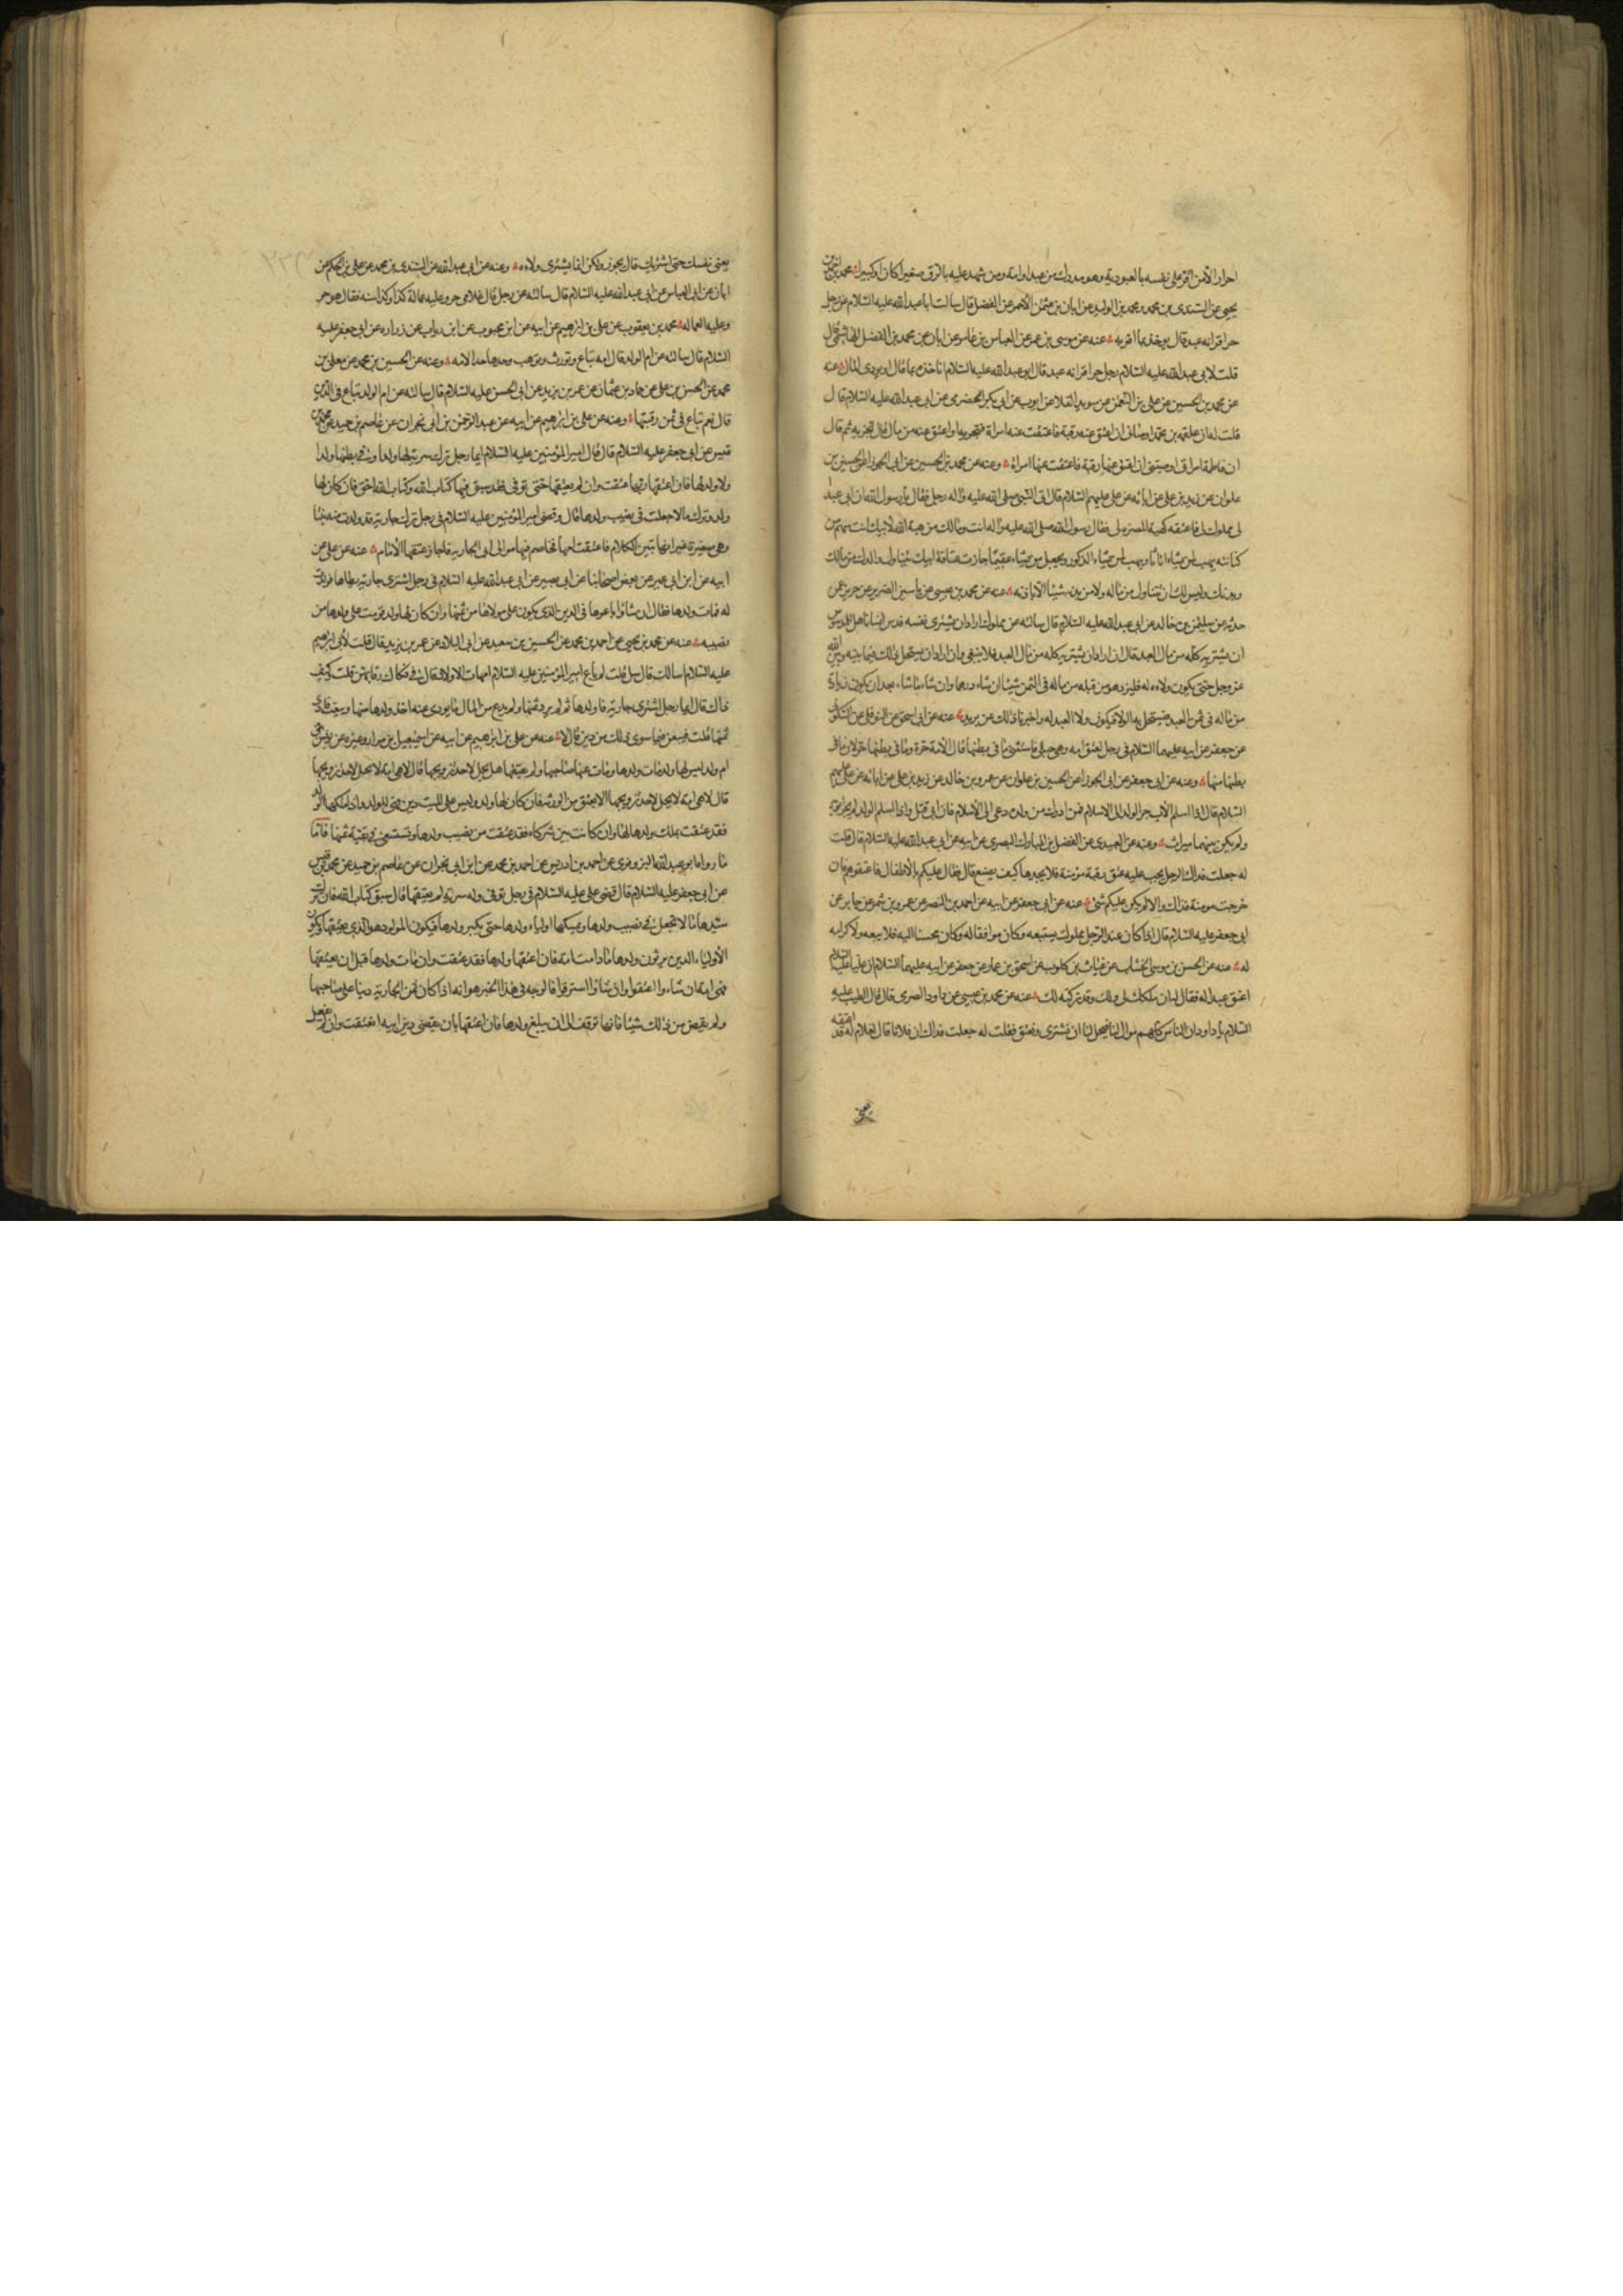 احرار الامن اقر على نفسه بالعبودية وهو مدرك من عبد او امة ومن شهد عليه بالرق صغيرا كان او كبيرا محمد بن احمد بن
يحيى عن السندى بن محمد ومحمد بن الوليد عن ابان بن عثمن الاحمر عن الفضل قال سالت ابا عبد الله عليه السلام عن رجل
حر اقر انه عبد قال يوخذ بما اقر به عنه عن موسى بن عمر عن العباس بن عامر عن ابان عن محمد بن الفضل الهاشمى قال
قلت لابى عبد الله عليه السلام رجل حر اقر انه عبد قال ابو عبد الله عليه السلام ناخذه بما قال او يودى المال عنه
عن محمد بن الحسين عن على بن النعمن عن سويد القلا عن ايوب عن ابى بكر الحضرمى عن ابى عبد الله عليه السلام قال
قلت له ان علقمه بن محمد اوصانى ان اعتق عنه رقبة فاعتقت عنه امراة فتجزيه او اعتق عنه من مالى قال تجزيه ثم قال
ان فاطمة امراتى اوصتنى ان اعتق عنها رقبة فاعتقت عنها امراة وعنه عن محمد بن الحسين عن ابى الجوزا عن الحسين بن
علوان عن زيد بن على عن ابائه عن على عليهم السلام قال اتى النبى صلى الله عليه واله رجل فقال يا رسول الله ان ابى عمد
لى مملوك لى فاعتقه كهيئة المضرة لى فقال رسول الله صلى الله عليه واله انت ومالك من هبة الله لابيك انت سهم من
كنانته يهب لمن يشاء اناثا ويهب لمن يشاء الذكور ويجعل من يشاء عقيما جازت عتاقة ابيك يتناول والدك من مالك
وبدنك وليس لك ان تتناول من ماله ولا من بدنه شيئا الا باذنه عنه عن محمد بن عيسى عن ياسين الضرير عن حريز عمن
حدثه عن سليمن بن خالد عن ابى عبد الله عليه السلام قال سالته عن مملوك اراد ان يشترى نفسه فدس انسانا هل للمدسوس
ان يشتريه كله من مال العبد قال ان اراد ان يشتريه كله من مال العبد فلا ينبغى وان اراد ان يستحل ذلك فيما بينه وبين الله
عز وجل حتى يكون ولاءه له فليزد هو من قبله من ماله فى الثمن شيئا ان شاء درهما وان شاء ما شاء بعد ان يكون زيادة
من ماله فى ثمن العبد يستحل به الولا فيكون ولا العبد له واخبرنا ذلك عن بريد عنه عن ابى اسحق عن النوفلى عن السكونى
عن جعفر عن ابيه عليهما السلام فى رجل اعتق امه وهى حبلى فاستثنى ما فى بطنها قال الامة حرة وما فى بطنها حر لان ما فى
بطنها منها وعنه عن ابى جعفر عن ابى الجوزا عن الحسين بن علوان عن عمرو بن خالد عن زيد بن على عن ابائه عن على عليهم
السلام قال اذا اسلم الاب جر الولد الى الاسلام فمن ادرك من ولده دعى الى الاسلام فان ابى قتل واذا اسلم الولد لم يجر ابويه
ولم يكن بينهما ميراث وعنه عن العبيدى عن الفضل بن المبارك البصرى عن ابيه عن ابى عبد الله عليه السلام قال قلت
له جعلت فداك الرجل يجب عليه عتق رقبة مؤمنة فلا يجدها كيف يصنع قال فقال عليكم بالاطفال فاعتقوهم فان
خرجت مومنة فذاك والا لم يكن عليكم شئ عنه عن ابى جعفر عن ابيه عن احمد بن النضر عن عمرو بن شمر عن جابر عن
ابى جعفر عليه السلام قال اذا كان عند الرجل مملوك يستبيعه وكان موافقا له وكان محسنا اليه فلا يبعه ولا كرامه
له عنه عن الحسن بن موسى الخشاب عن غياث بن كلوب عن اسحق بن عمار عن جعفر عن ابيه عليهما السلام ان عليا عليه السلام
اعتق عبدا له فقال له ان ملكك لى ولك وقد تركته لك عنه عن محمد بن عيسى عن داود الصرمى قال قال الطيب عليه
السلام يا داود ان الناس كلهم موال لنا فيحل لنا ان نشترى ونعتق فقلت له جعلت فداك ان فلانا قال لغلام له قد اعتقه
يعنى
يعنى نفسك حتى اشتريك قال يجوز ولكن انما يشترى ولاءه وعنه عن ابى عبد الله عن السندى بن محمد عن على بن الحكم عن
ابان عن ابى العباس عن ابى عبد الله عليه السلام قال سالته عن رجل قال غلامى حر وعليه عمالة كذا وكذا سنه فقال هو حر
وعليه العماله محمد بن يعقوب عن على بن ابرهيم عن ابيه عن ابن محبوب عن ابن رياب عن زراره عن ابى جعفر عليه
السلام قال سالته عن ام الولد قال امه تباع وتورث وتوهب وحدها حد الامه وعنه عن الحسين بن محمد عن معلى بن
محمد عن الحسن بن على عن حماد بن عثمان عن عمر بن يزيد عن ابى الحسن عليه السلام قال سالته عن ام الولد تباع فى الدين
قال نعم تباع فى ثمن رقبتها وعنه عن على بن ابرهيم عن ابيه عن عبد الرحمن بن ابى نجران عن عاصم بن حميد عن محمد بن
قيس عن ابى جعفر عليه السلام قال قال امير المؤمنين عليه السلام ايما رجل ترك سرية لها ولد او فى بطنها ولد او
ولا ولد لها فان اعتقها ربها عتقت وان لم يعتقها حتى توفى فقد سبق فيها كتاب الله وكتاب الله احق فان كان لها
ولد وترك مالا جعلت فى نصيب ولدها قال وقضى امير المؤمنين عليه السلام فى رجل ترك جارية قد ولدت منه بنتا
وهى صغيرة غير انها تبين الكلام فاعتقت امها فخاصم فيها موالى ابى الجاريه فاجاز عتقها الامام عنه عن على عن
ابيه عن ابن ابى عمير عن بعض اصحابنا عن ابى بصير عن ابى عبد الله عليه السلام فى رجل اشترى جارية يطاها فولدت
له فمات ولدها فقال ان شاؤا باعوها فى الدين الذى يكون على مولاها من ثمنها وان كان لها ولد قومت على ولدها من
نصيبه عنه عن محمد بن يحيى عن احمد بن محمد عن الحسين بن سعيد عن ابى البلاد عن عمر بن يزيد قال قلت لابى ابرهيم
عليه السلام اسالك قال سل قلت لم باع امير المؤمنين عليه السلام امهات الاولاد قال فى فكاك رقابهن قلت وكيف
ذاك قال ايما رجل اشترى جارية فاولدها ثم لم يرد ثمنها ولم يدع من المال ما يودى عنه اخذ ولدها منها وبيعت فادى
ثمنها قلت فيبعن فيما سوى ذلك من دين قال لا عنه عن على بن ابرهيم عن ابيه عن اسمعيل بن مرار وغيره عن يونس فى
ام ولد ليس لها ولد مات ولدها ومات عنها صاحبها ولم يعتقها هل يحل لاحد تزويجها قال لا هى امة لا يحل لاحد تزويجها
قال لا هى امة لا يحل لاحد تزويجها الا بعتق من الورثه فان كان لها ولد وليس على الميت دين فهى للولد واذا ملكها الولد
فقد عتقت بملك ولدها لها وان كانت بين شركاء فقد عتقت من نصيب ولدها وتستسعى فى بقية ثمنها فاما
ما رواه ابو عبد الله البزوفرى عن احمد بن ادريس عن احمد بن محمد عن ابن ابى نجران عن عاصم بن حميد عن محمد بن قيس
عن ابى جعفر عليه السلام قال قضى على عليه السلام فى رجل توفى وله سرية لم يعتقها قال سبق كتاب الله فان ترك
سيدها مالا تجعل فى نصيب ولدها ويمسكها اولياء ولدها حتى يكبر ولدها فيكون المولود هو الذى يعتقها ويكون
الاولياء الذين يرثون ولدها ما دامت امة فان اعتقها ولدها فقد عتقت وان مات ولدها قبل ان يعتقها
فهى امة ان شاءوا اعتقوا وان شاؤا استرقوا فالوجه فى هذا الخبر هو انه اذا كان ثمن الجارية دينا على صاحبها
ولم يقض من ذلك شيئا فانها توقف الى ان يبلغ ولدها فان اعتقها بان يقضى دين ابيه انعتقت وان لم يفعل